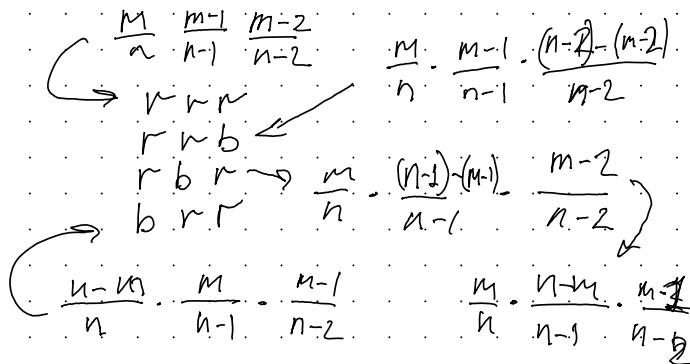 m/n (m-1)/(n-1) (m-2)/(n-2)
m/n · (m-1)/(n-1) · ((n-2)-(m-2))/(n-2)
r r r
r r b
r b r
m/n · ((n-1)-(m-1))/(n-1) · (m-2)/(n-2)
b r r
(n-m)/n · m/(n-1) · (m-1)/(n-2)
m/n · (n-m)/(n-1) · (m-1)/(n-2)